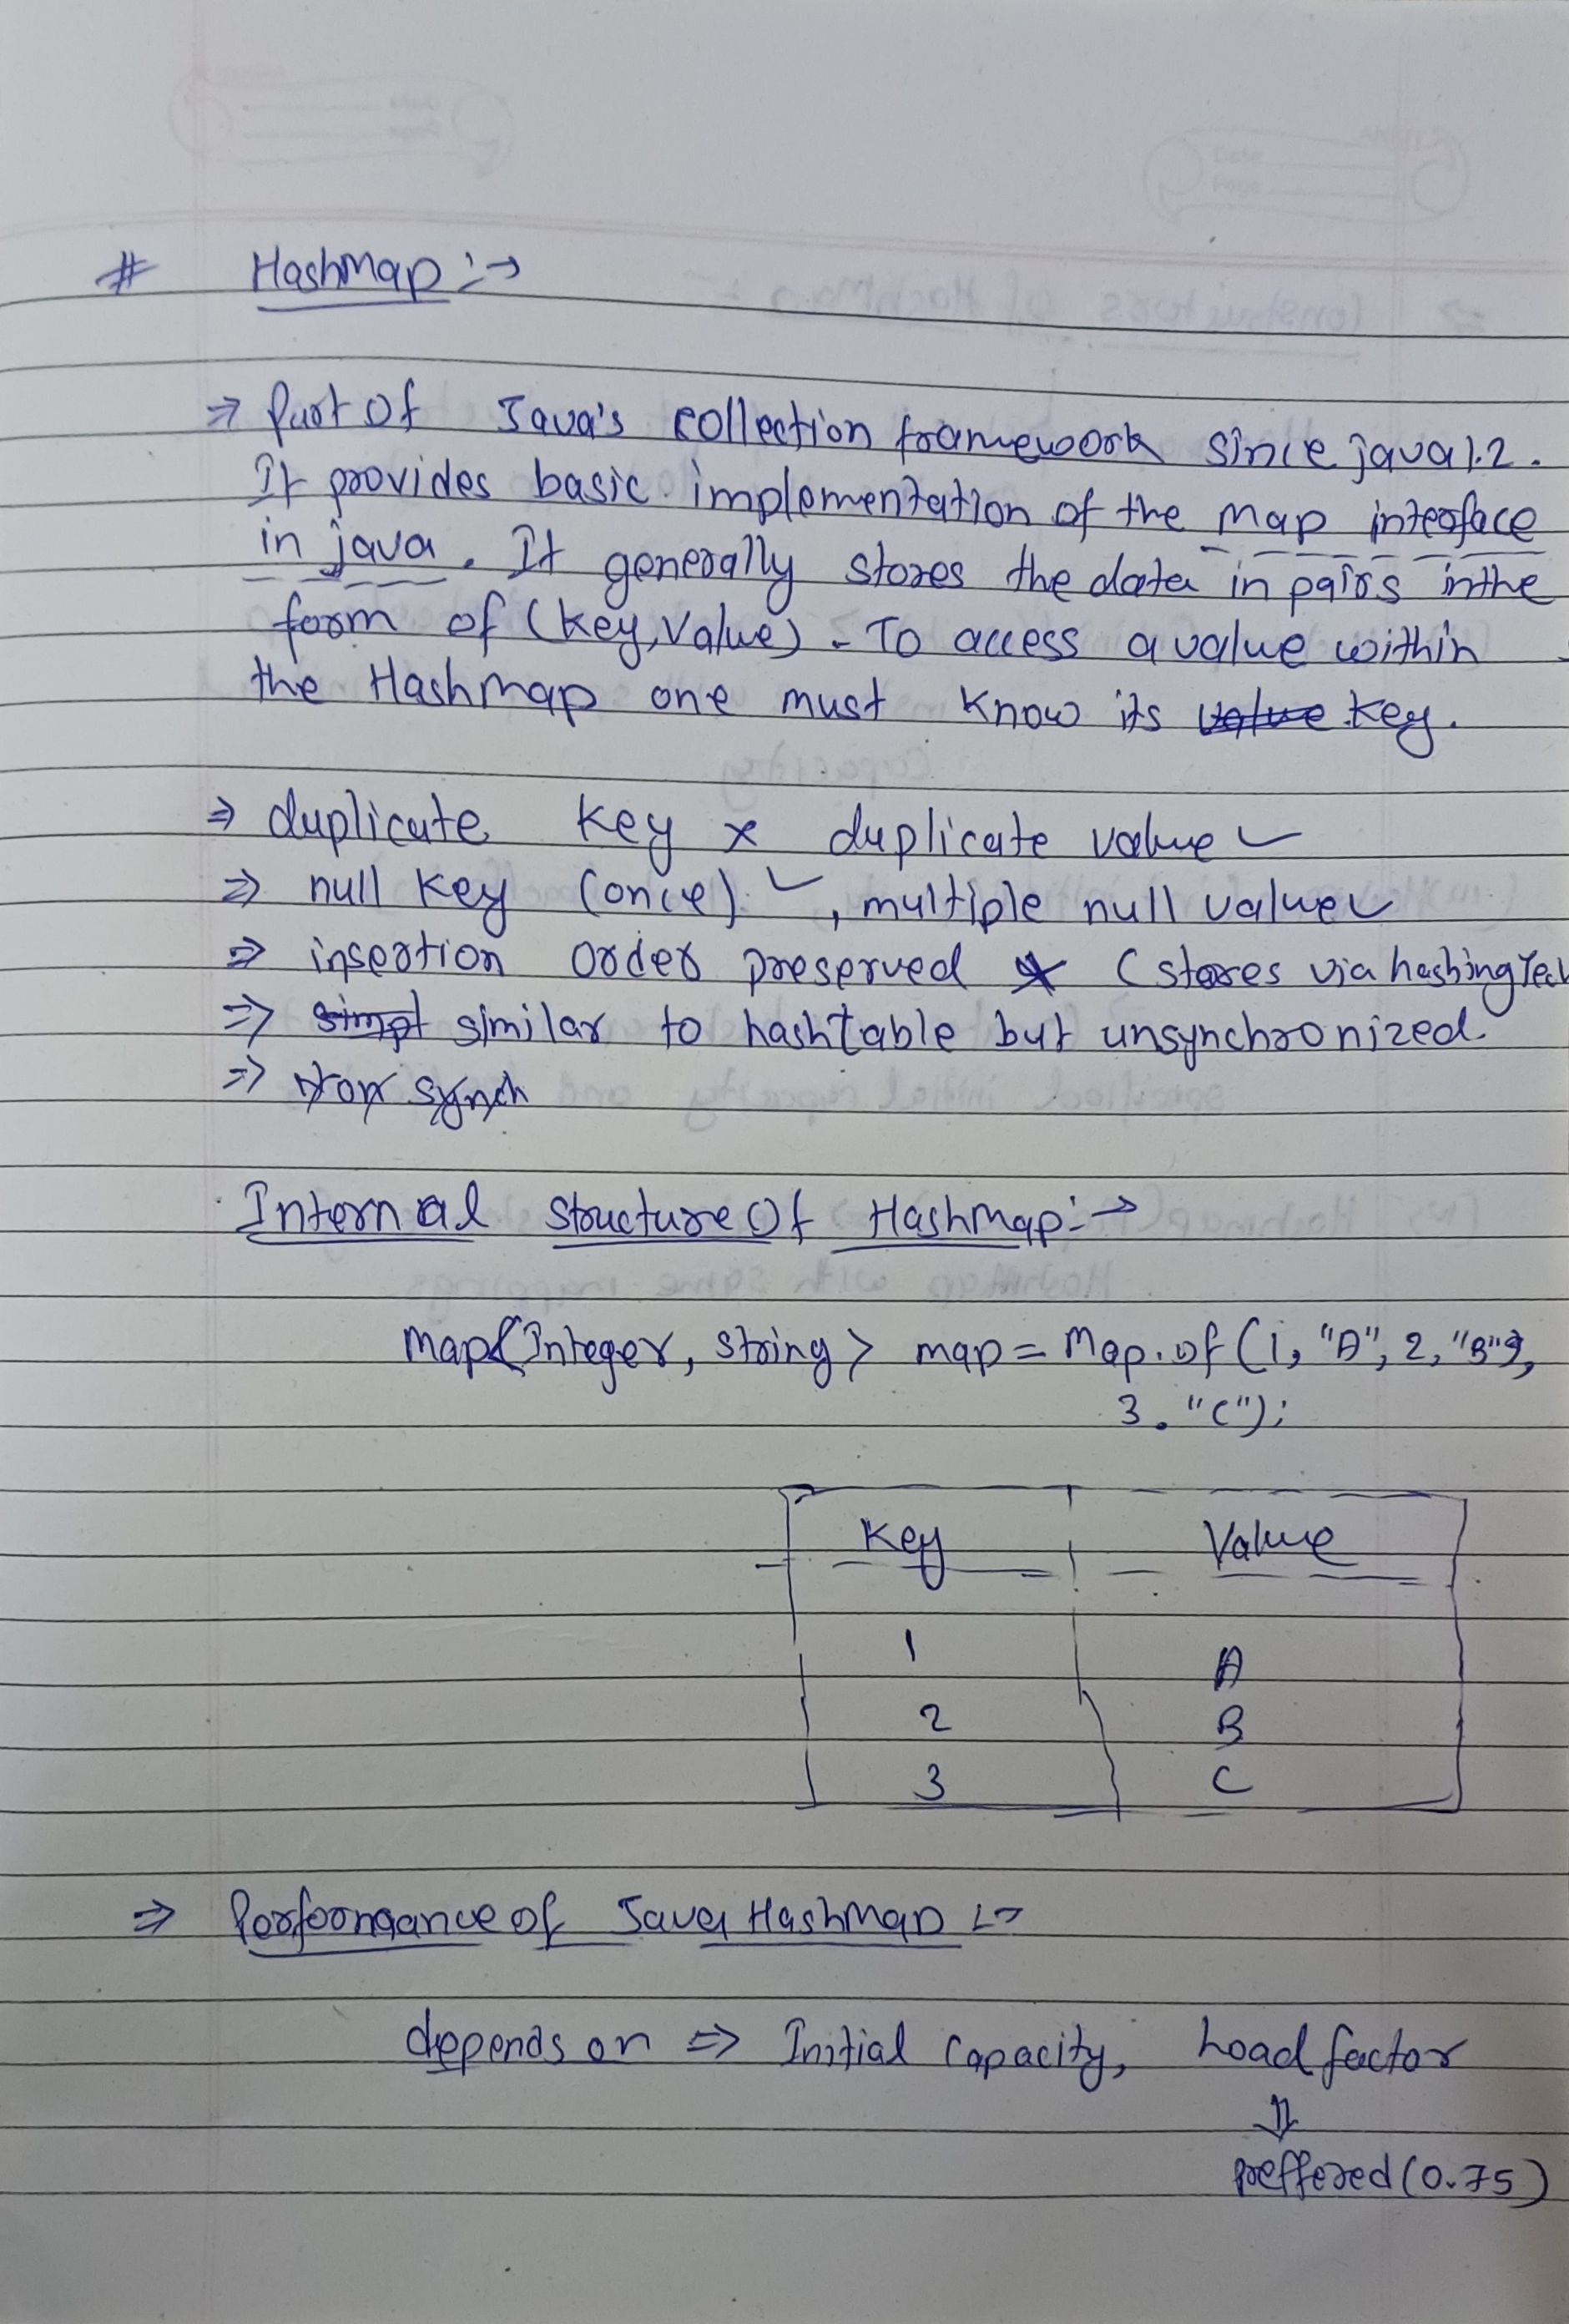 # Hashmap :→
⇒ Part Of Java's collection framework since java 1.2.
It provides basic implementation of the map interface
in java. It generally stores the data in pairs in the
form of (Key, Value). To access a value within
the Hashmap one must know its value key.
⇒ duplicate key × duplicate value ✓
⇒ null key (once) ✓, multiple null value ✓
⇒ insertion order preserved × (stores via hashing Tech
⇒ simpl similar to hashtable but unsynchronized.
⇒ Non synch
Internal structure Of Hashmap :→
Map<Integer, String> map = Map.of (1, "A", 2, "B",
3. "C");
Key Value
1 A
2 B
3 C
⇒ Performance of Java HashMap :→
depends on ⇒ Initial Capacity, Load factor
⇓
preffered (0.75)